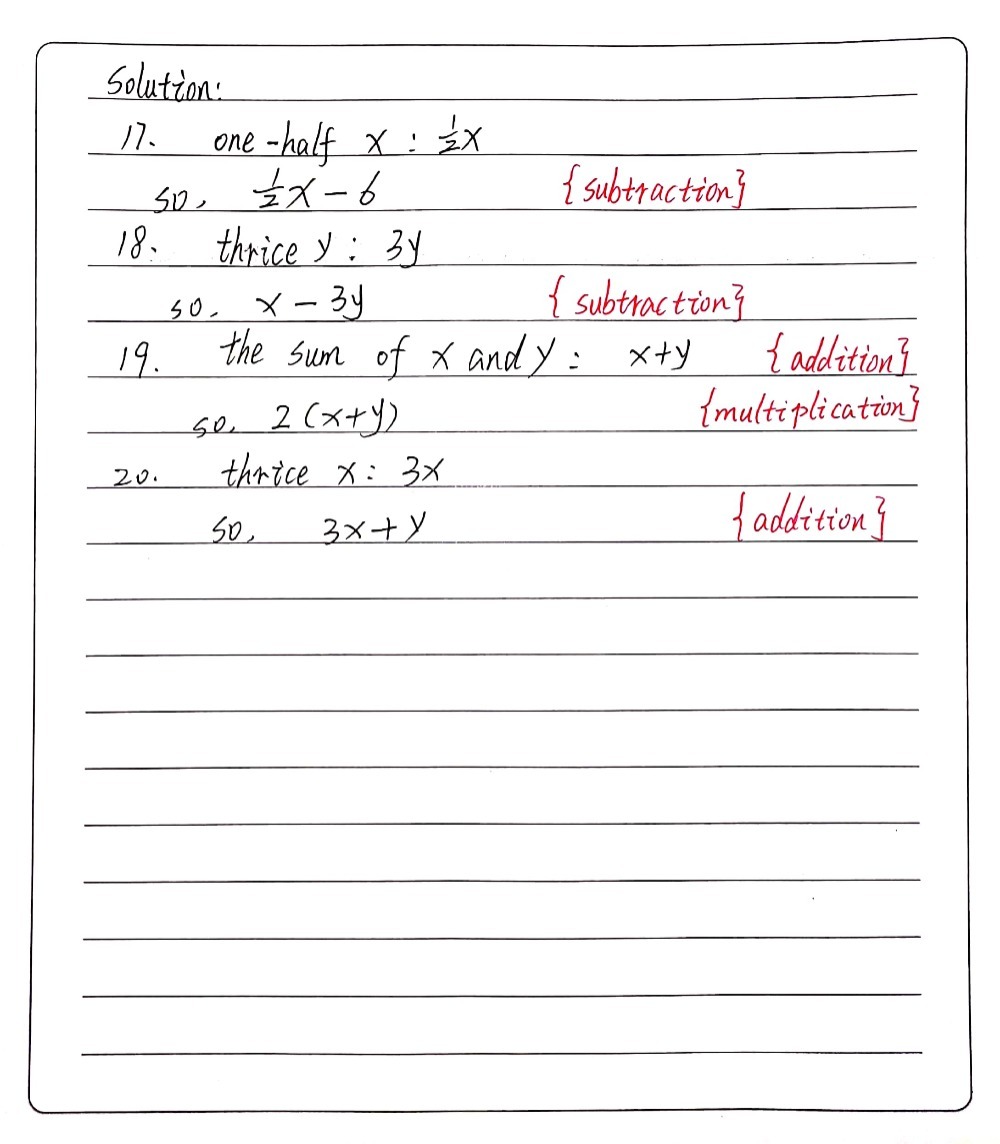 Solution:
17. one-half x : ½x
so, ½x - 6 {subtraction}
18. thrice y : 3y
so, x - 3y {subtraction}
19. the sum of x and y : x+y {addition}
so, 2(x+y) {multiplication}
20. thrice x : 3x
so, 3x+y {addition}